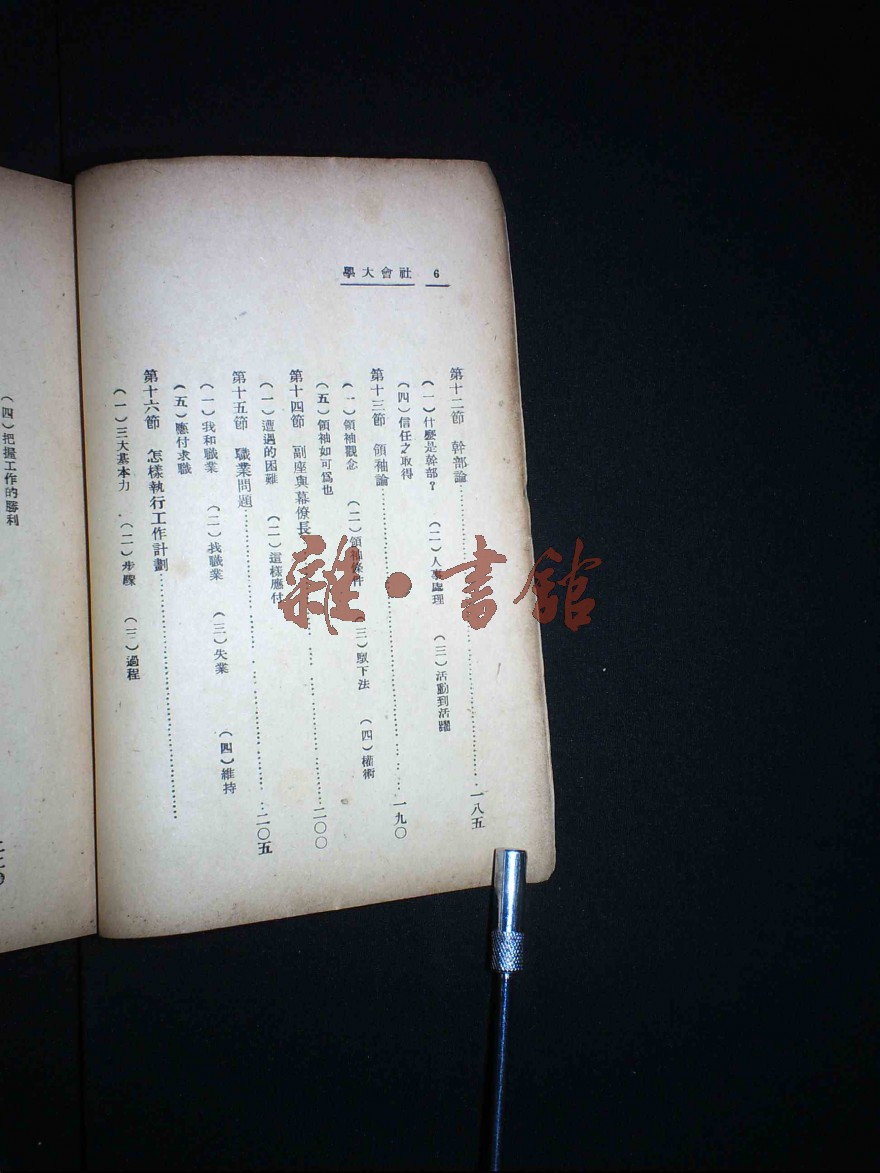 6 社會大學
第十二節 幹部論……一八五
（一）什麼是幹部？ （二）人事處理 （三）活動到活躍
（四）信任之取得
第十三節 領袖論……一九〇
（一）領袖觀念 （二）領袖條件 （三）馭下法 （四）權術
（五）領袖如可為也
第十四節 副座與幕僚長……二〇〇
（一）遭遇的困難 （二）這樣應付
第十五節 職業問題……二〇五
（一）我和職業 （二）找職業 （三）失業 （四）維持
（五）應付求職
第十六節 怎樣執行工作計劃……
（一）三大基本力 （二）步驟 （三）過程
（四）把握工作的勝利
雜·書館